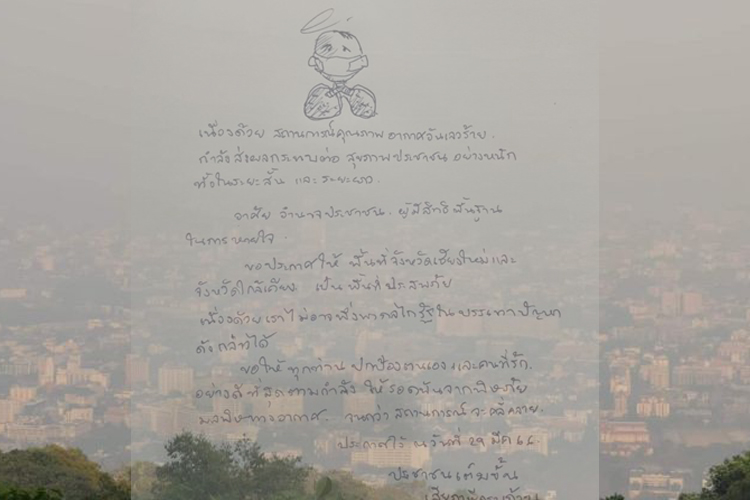 เนื่องด้วย สถานการณ์คุณภาพ อากาศอันเลวร้าย.
กำลังส่งผลกระทบต่อ สุขภาพประชาชน อย่างหนัก
ทั้งในระยะสั้น และ ระยะยาว.
อาศัย อำนาจประชาชน. ผู้มีสิทธิพื้นฐาน
ในการหายใจ.
ขอประกาศให้ พื้นที่จังหวัดเชียงใหม่และ
จังหวัดใกล้เคียง เป็น พื้นที่ประสบภัย
เนื่องด้วยเราไม่อาจพึ่งพากลไกรัฐใน บรรเทาปัญหา
ดังกล่าวได้
ขอให้ ทุกท่าน ปกป้องตนเอง และคนที่รัก.
อย่างดีที่สุดตามกำลัง ให้รอดพ้นจากพิษภัย
มลพิษทางอากาศ. จนกว่า สถานการณ์จะคลี่คลาย.
ประกาศไว้ ณ วันที่ 29 มีค
ประชาชนเต็มขั้น